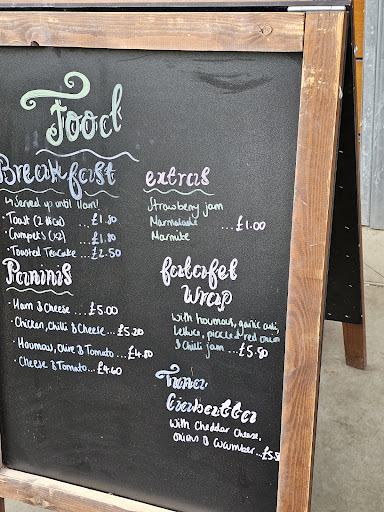 Food
Breakfast
↳ Served up until 11am!
• Toast (2 slices) ... £1.80
• Crumpets (x2) ... £1.80
• Toasted Teacake ... £2.50
Paninis
• Ham & Cheese ... £5.00
• Chicken, Chilli & Cheese ... £5.20
• Houmous, Olive & Tomato ... £4.80
• Cheese & Tomato ... £4.60
extras
Strawberry jam
Marmalade ... £1.00
Marmite
falafel
wrap
with houmous, garlic aioli,
lettuce, pickled red onion
& Chilli jam ... £5.80
Tuna
With Cheddar Cheese,
onions & Cucumber ... £5.8